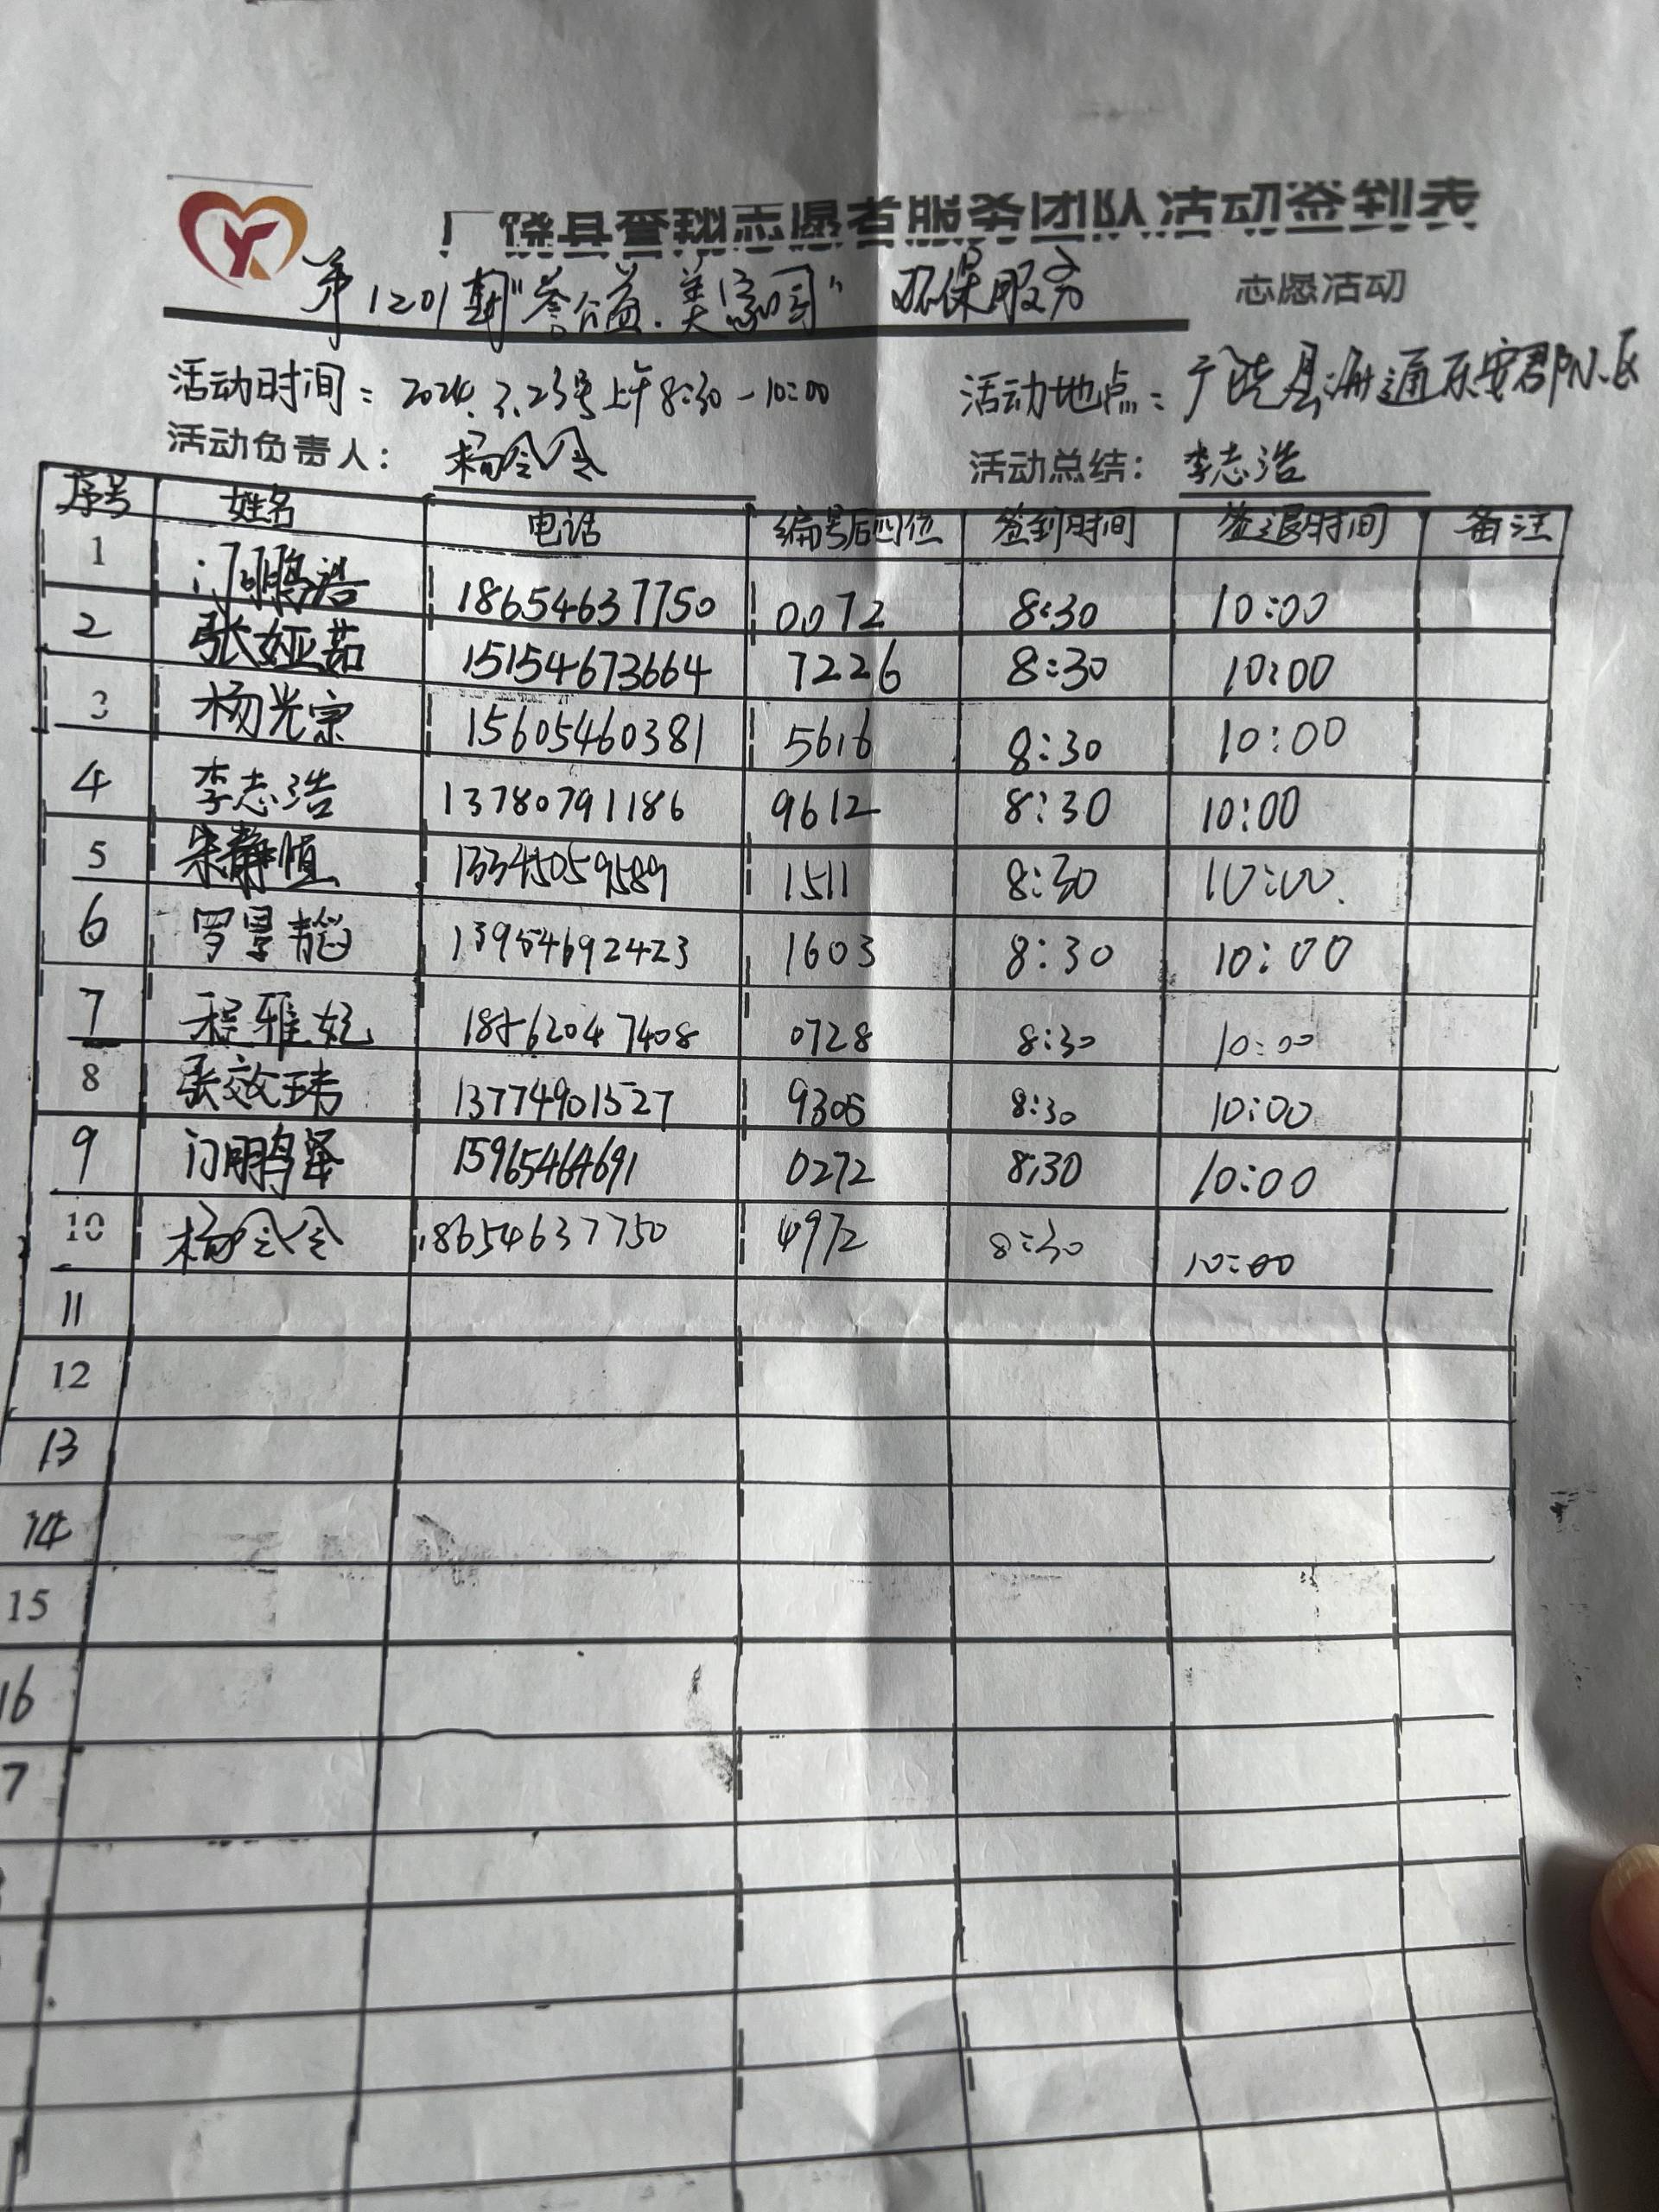 广饶县誉翔志愿者服务团队活动签到表
第1201期"誉公益.美家园"环保服务 志愿活动
活动时间：2024.3.23号上午8:30-10:00 活动地点：广饶县海通乐安郡小区
活动负责人：杨会会 活动总结：李志浩
序号 姓名 电话 编号后四位 签到时间 签退时间 备注
1 门鹏浩 18654637750 0072 8:30 10:00
2 张娅茹 15154673664 7226 8:30 10:00
3 杨光宗 15605460381 5616 8:30 10:00
4 李志浩 13780791186 9612 8:30 10:00
5 宋静恒 13345059589 1511 8:30 10:00
6 罗景韬 13954692423 1603 8:30 10:00
7 程雅妃 18562047408 0728 8:30 10:00
8 张效玮 13774901527 9305 8:30 10:00
9 门鹏泽 15965464691 0272 8:30 10:00
10 杨会会 18654637750 4972 8:30 10:00
11
12
13
14
15
16
7